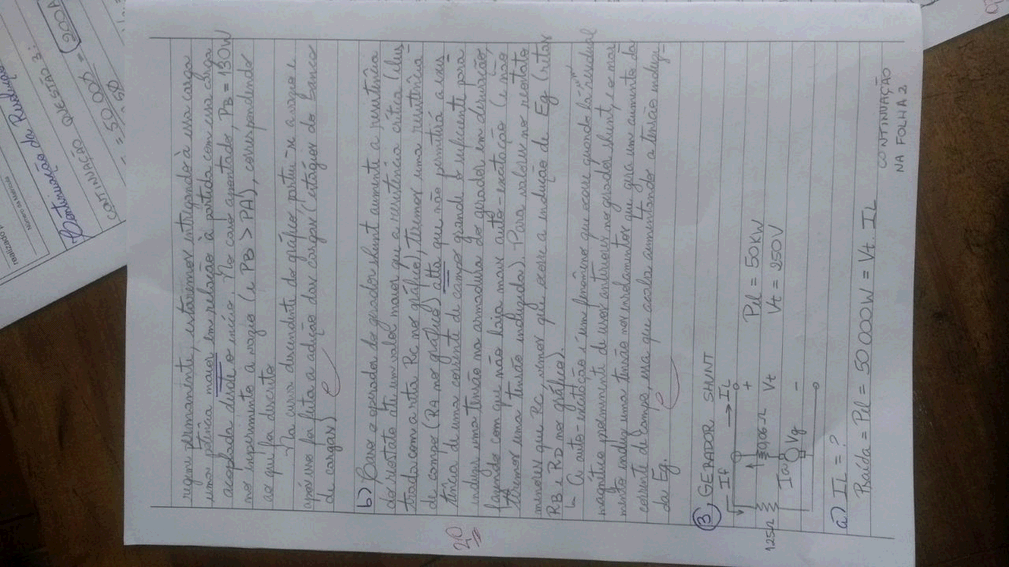 regime permanente, estaremos entregando à essa carga
uma potência maior em relação à partida com essa carga
acoplada desde o início. No caso apontado PB = 130W
no experimento a vazio (e PB > PA), correspondendo
ao que foi descrito
Na curva descendente do gráfico partiu-se a vazio e
aproximo foi feita a adição das cargas (estágios do banco
de cargas)
b) Caso o operador do gerador shunt aumente a resistência
do reostato até um valor maior que a resistência crítica (ilus
trada com a reta Rc no gráfico), teremos uma resistência
de campo (RA no gráfico) alta que não permitirá a exis
tência de uma corrente de campo grande o suficiente para
induzir uma tensão na armadura do gerador em derivação,
fazendo com que não haja mais auto-excitação (e não
teremos uma tensão induzida). Para valores no reostato
menores que RC, vemos que ocorre a indução de Eg (retas
RB e RD no gráfico).
↳ A auto-excitação é um fenômeno que ocorre quando há residual
magnético proveniente de usos anteriores no gerador shunt, e o mag
netismo induz uma tensão nos enrolamentos que gera um aumento da
corrente de campo, essa que acaba aumentando a tensão induzi-
da Eg.
20
3) GERADOR SHUNT
← If → IL
125Ω
0,06Ω
Vt
+
-
Ia
Vg
Pil = 50KW
Vt = 250V
a) IL = ?
Psaída = Pil = 50000W = Vt. IL
CONTINUAÇÃO
NA FOLHA 2
Continuação da Resolução
CONTINUAÇÃO QUESTÃO 3:
= 50 000 = 200A
250